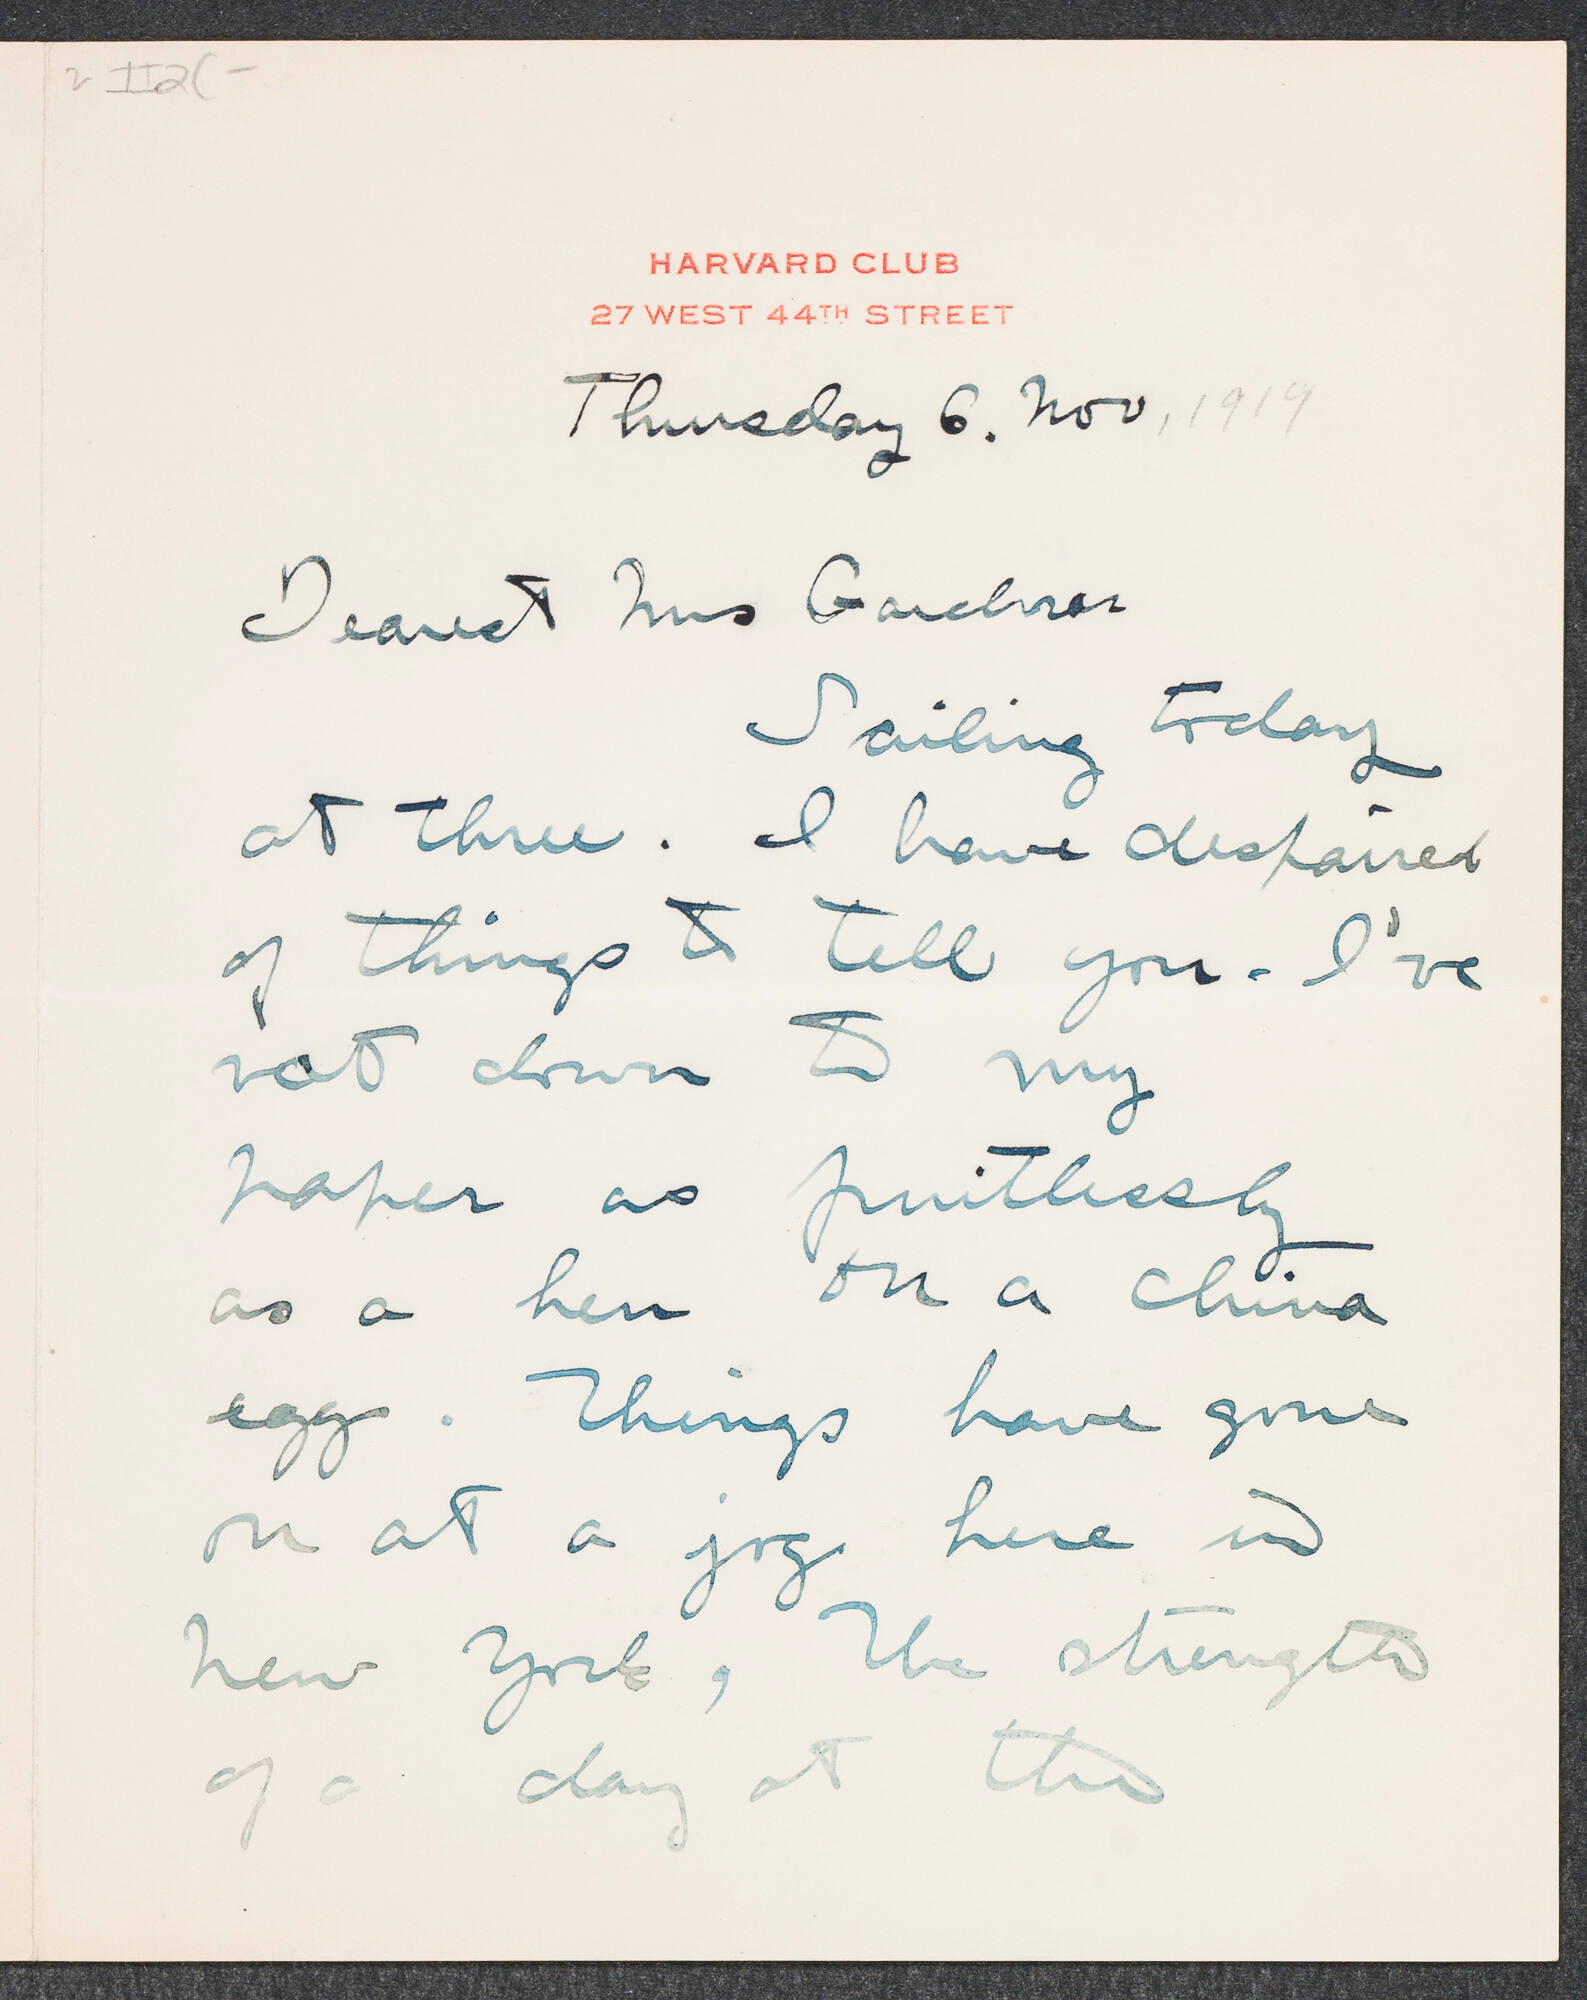 HARVARD CLUB
27 WEST 44TH STREET
Thursday 6. Nov, 1919
Dearest Mrs Gardner
Sailing today
at three. I have despaired
of things to tell you. I've
sat down to my
paper as fruitlessly
as a hen on a china
egg. Things have gone
on at a jog here in
New York, The strength
of a day at the